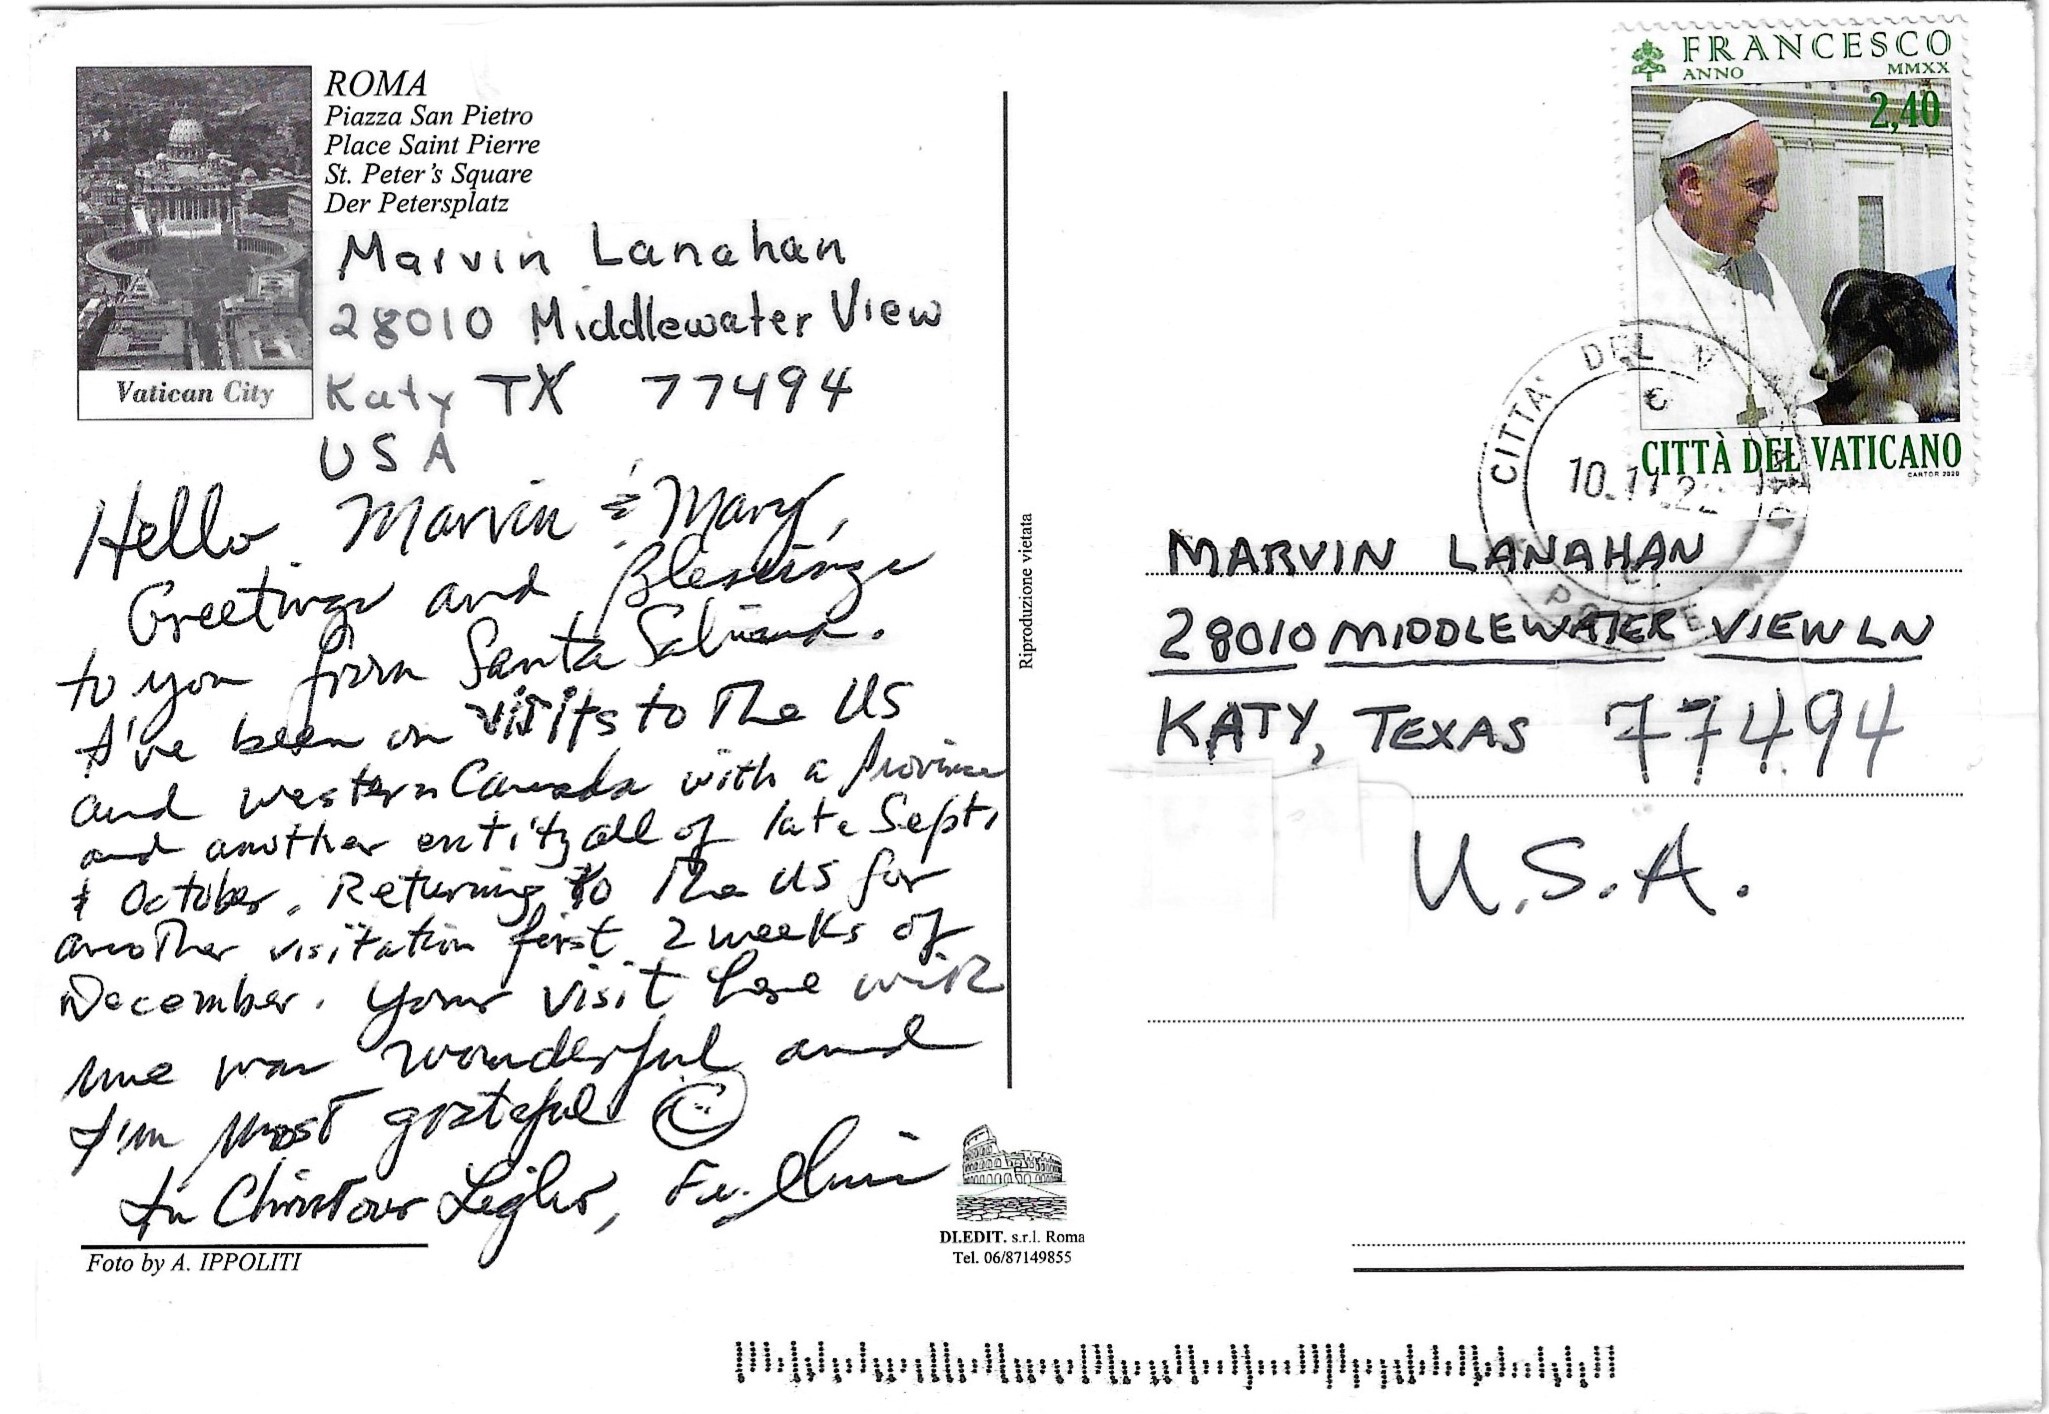 ROMA
Piazza San Pietro
Place Saint Pierre
St. Peter's Square
Der Petersplatz
Vatican City
Marvin Lanahan
28010 Middlewater View
Katy TX 77494
USA
Hello Marvin & Mary,
Greetings and Blessings
to you from Santa Sabina.
I've been on visits to the US
and western Canada with a Province
and another entity all of late Sept.
& October. Returning to the US for
another visitation first 2 weeks of
December. Your visit here with
me was wonderful and
I'm most grateful
In Christ our Light,
Foto by A. IPPOLITI
Riproduzione vietata
DI.EDIT. s.r.l. Roma
Tel. 06/87149855
FRANCESCO
ANNO MMXX
2,40
CITTÀ DEL VATICANO
CARTOR 2020
CITTA' DEL
POSTE
10.11.22
MARVIN LANAHAN
28010 MIDDLEWATER VIEW LN
KATY, TEXAS 77494
U.S.A.